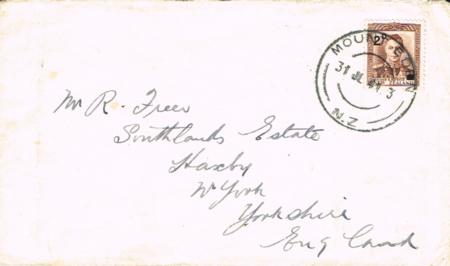 MOUNT
31 JL 41. 3
N.Z
Mr R. Freer
Southlands Estate
Haxby
Nr York
Yorkshire
England